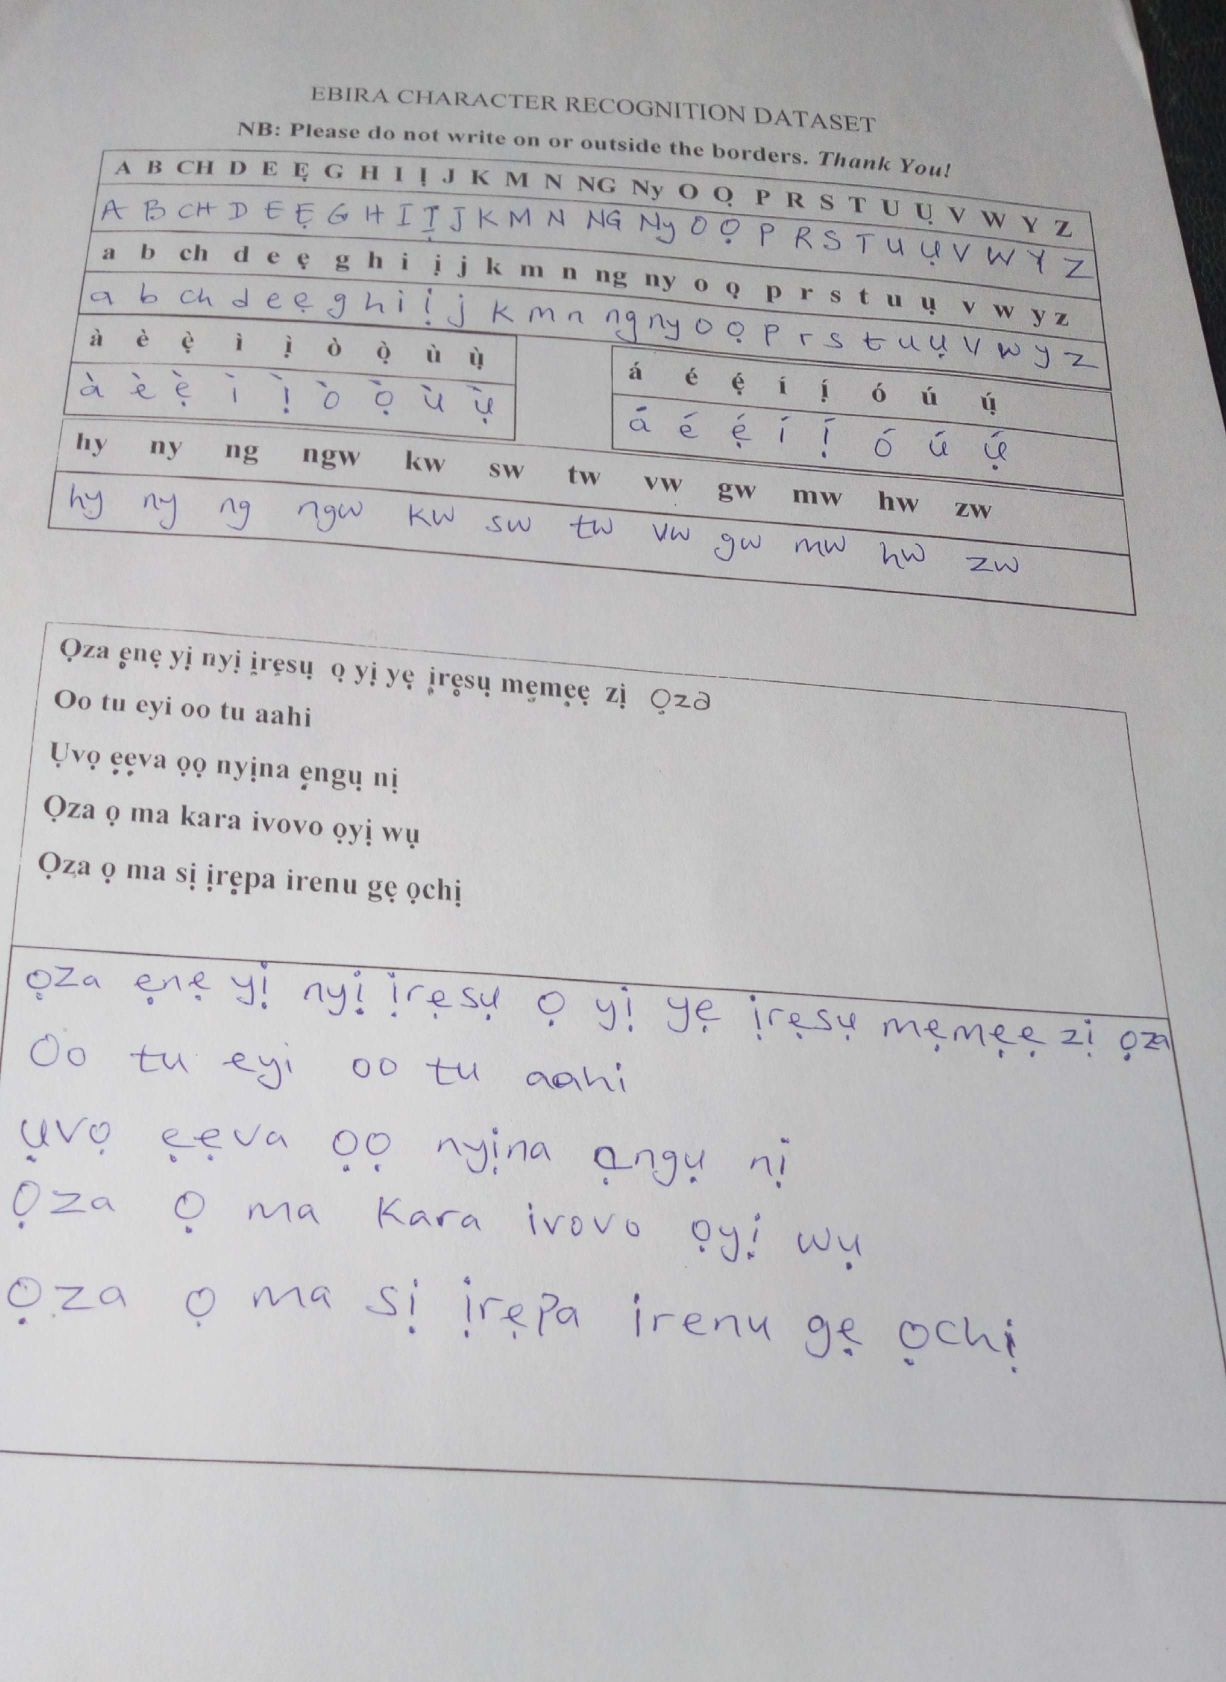 EBIRA CHARACTER RECOGNITION DATASET
NB: Please do not write on or outside the borders. Thank You!
A B CH D E Ẹ G H I Ị J K M N NG Ny O Ọ P R S T U Ụ V W Y Z
A B CH D E Ẹ G H I Ị J K M N NG Ny O Ọ P R S T U Ụ V W Y Z
a b ch d e ẹ g h i ị j k m n ng ny o ọ p r s t u ụ v w y z
a b ch d e ẹ g h i ị j k m n ng ny o ọ p r s t u ụ v w y z
à è ẹ̀ ì ị̀ ò ọ̀ ù ụ̀
à è ẹ̀ ì ị̀ ò ọ̀ ù ụ̀
á é ẹ́ í ị́ ó ú ụ́
á é ẹ́ í ị́ ó ú ụ́
hy ny ng ngw kw sw tw vw gw mw hw zw
hy ny ng ngw kw sw tw vw gw mw hw zw
Ọza ẹnẹ yị nyị ịrẹsụ ọ yị yẹ ịrẹsụ mẹmẹẹ zị ọza
Oo tu eyi oo tu aahi
Ụvọ ẹẹva ọọ nyịna ẹngụ nị
Ọza ọ ma kara ivovo ọyị wụ
Ọza ọ ma sị ịrẹpa irenu gẹ ọchị
ọza ẹnẹ yị nyị ịrẹsụ ọ yị yẹ ịrẹsụ mẹmẹẹ zị ọza
Oo tu eyi oo tu aahi
ụvọ ẹẹva ọọ nyịna ạngụ nị
Ọza ọ ma Kara ivovo ọyị wụ
Ọza ọ ma sị ịrẹpa irenu gẹ ọchị